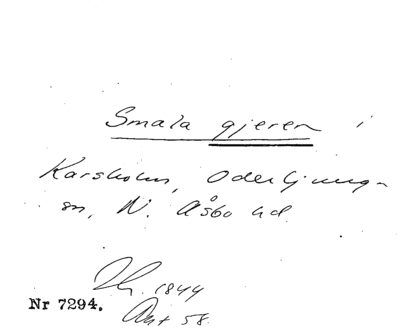 Smala gjeren i
Karsholm, Oderljunga-
sn, N. Åsbo hd.
1844
Nr 7294.
Akt 58.